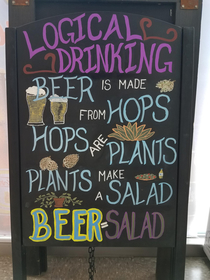 LOGICAL
DRINKING
BEER IS MADE
FROM HOPS
HOPS ARE PLANTS
PLANTS MAKE
A SALAD
BEER=SALAD